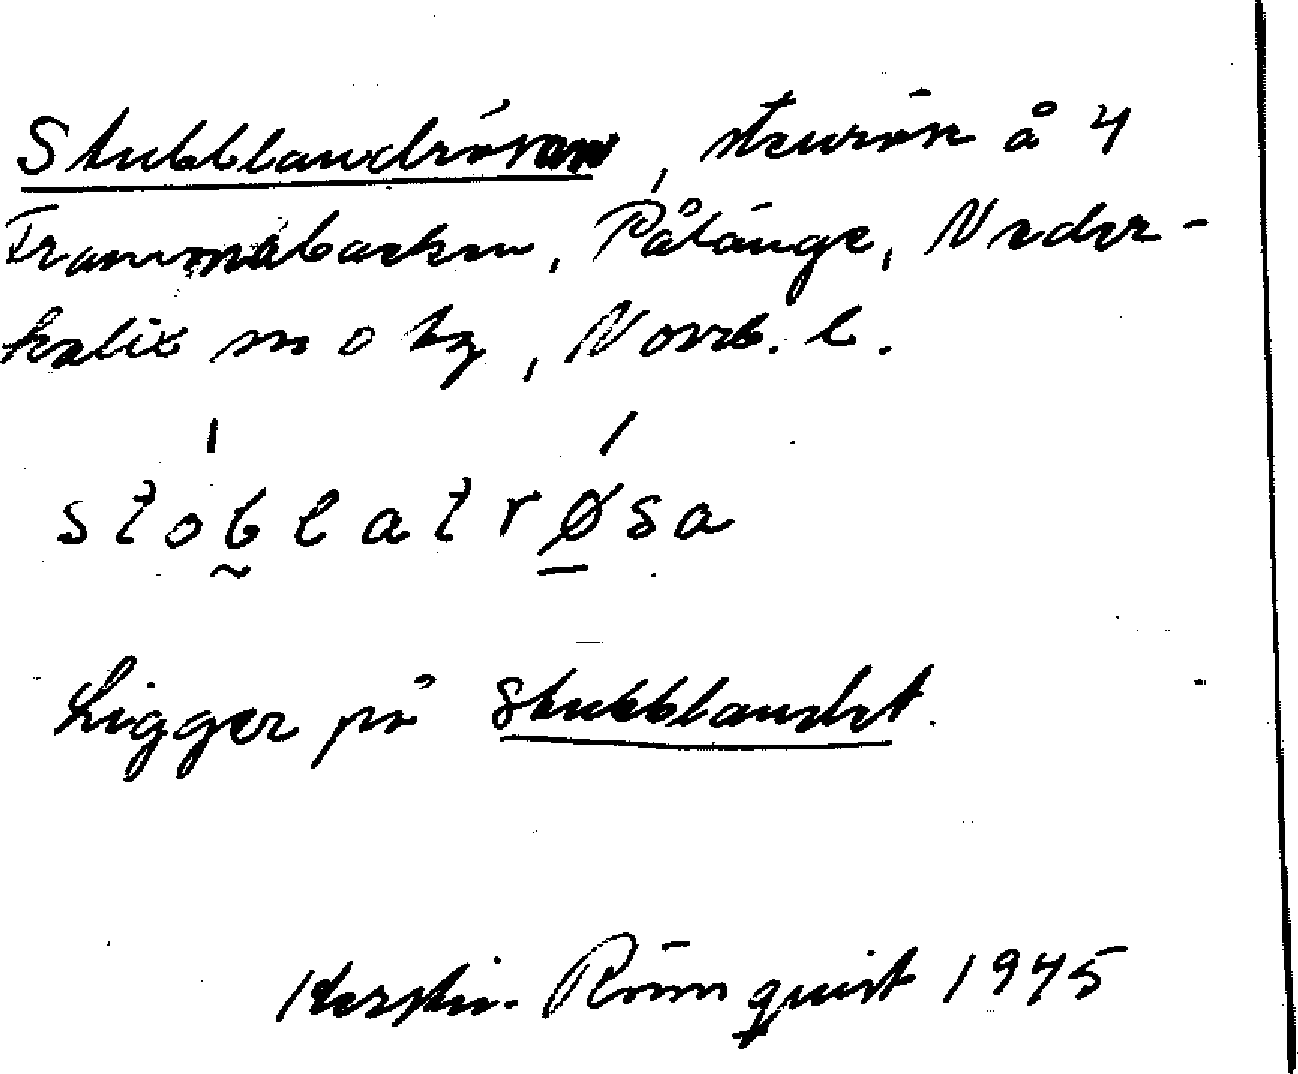 Stubblandrösan, stenrös å 4
Frammibacken, Pålänge, Neder-
kalix sn o tg, Norrb. l.
stoblatrøsa
Ligger på Stubblandet.
Kerstin Rönnquist 1945